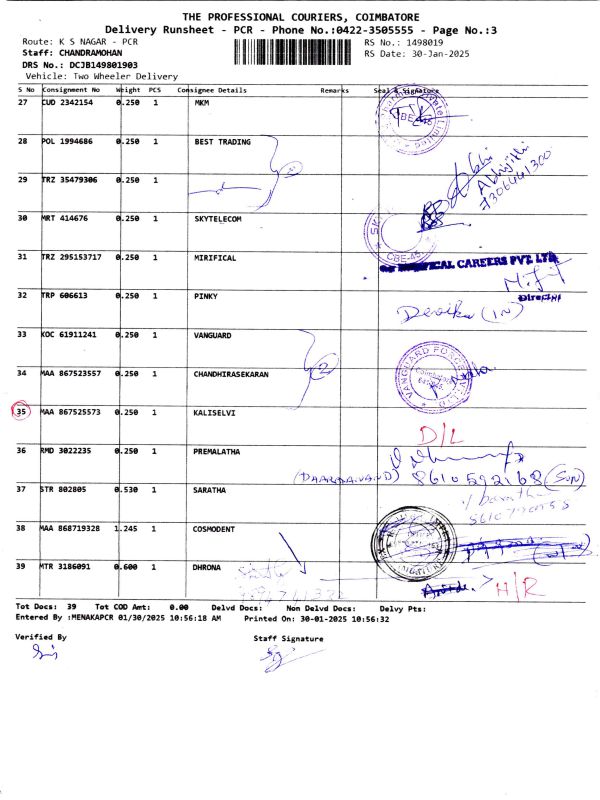 THE PROFESSIONAL COURIERS, COIMBATORE
Delivery Runsheet - PCR - Phone No.:0422-3505555 - Page No.:3
Route: K S NAGAR - PCR
RS No.: 1498019
Staff: CHANDRAMOHAN
RS Date: 30-Jan-2025
DRS No.: DCJB149801903
Vehicle: Two Wheeler Delivery
S No Consignment No Weight PCS Consignee Details Remarks Seal & Signature
27 CUD 2342154 0.250 1 MKM
CBE-45
28 POL 1994686 0.250 1 BEST TRADING
29 TRZ 35479306 0.250 1
Abhijith
7306441300
30 MRT 414676 0.250 1 SKYTELECOM
CBE-45
31 TRZ 295153717 0.250 1 MIRIFICAL
CAREERS PVT. LTD
Director
32 TRP 606613 0.250 1 PINKY
Devika (IN)
33 KOC 61911241 0.250 1 VANGUARD
VANGUARD FORCE
34 MAA 867523557 0.250 1 CHANDHIRASEKARAN 2
35 MAA 867525573 0.250 1 KALISELVI
D/L
36 RMD 3022235 0.250 1 PREMALATHA
8610592168 (SUN)
37 STR 802805 0.530 1 SARATHA
38 MAA 868719328 1.245 1 COSMODENT
39 MTR 3186091 0.600 1 DHRONA
H/R
Tot Docs: 39 Tot COD Amt: 0.00 Delvd Docs: Non Delvd Docs: Delvy Pts:
Entered By :MENAKAPCR 01/30/2025 10:56:18 AM Printed On: 30-01-2025 10:56:32
Verified By Staff Signature